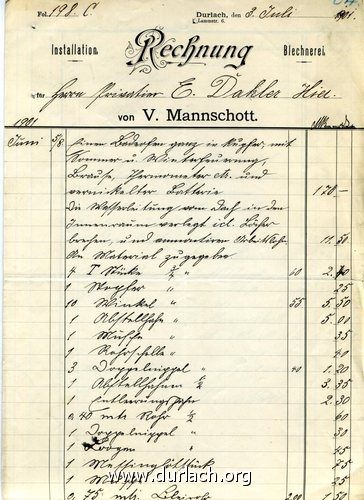 Fol. 198. C. Durlach, den 3. Juli 1901.
Lammstr. 6.
Installation. Rechnung Blechnerei.
für Herrn Privatier E. Dahler Hier.
von V. Mannschott.
1901
Juni 5/8. Einen Badeofen ganz in Kupfer, mit
Sommer u. Winterfeuerung,
Brause, Thermometer u. und
vernickelter Batterie 120 —
Die Wasserleitung vom Dach in den
Innenraum verlegt icl. Löcher
brechen, und 11. 50
An Material zugegeben
4 T Stücke 3/4 " 60 2. 40
1 Stopfer " 25
10 Winkel " 55 5. 50
1 Abstellhahn " 5. 00
1 Muffe " 35
1 Rohrschelle " 40
3 Doppelnippel " 40 1. 20
1 Abstellhahnen 1/2 3. 35
1 Entleerungshahn 2. 30
0,40 mtr Rohr 1/2
Doppelnippel " 30
Bogen " 45
1 Messing 75
1 " 25
0,75 mtr. Bleirohr
www.durlach.org